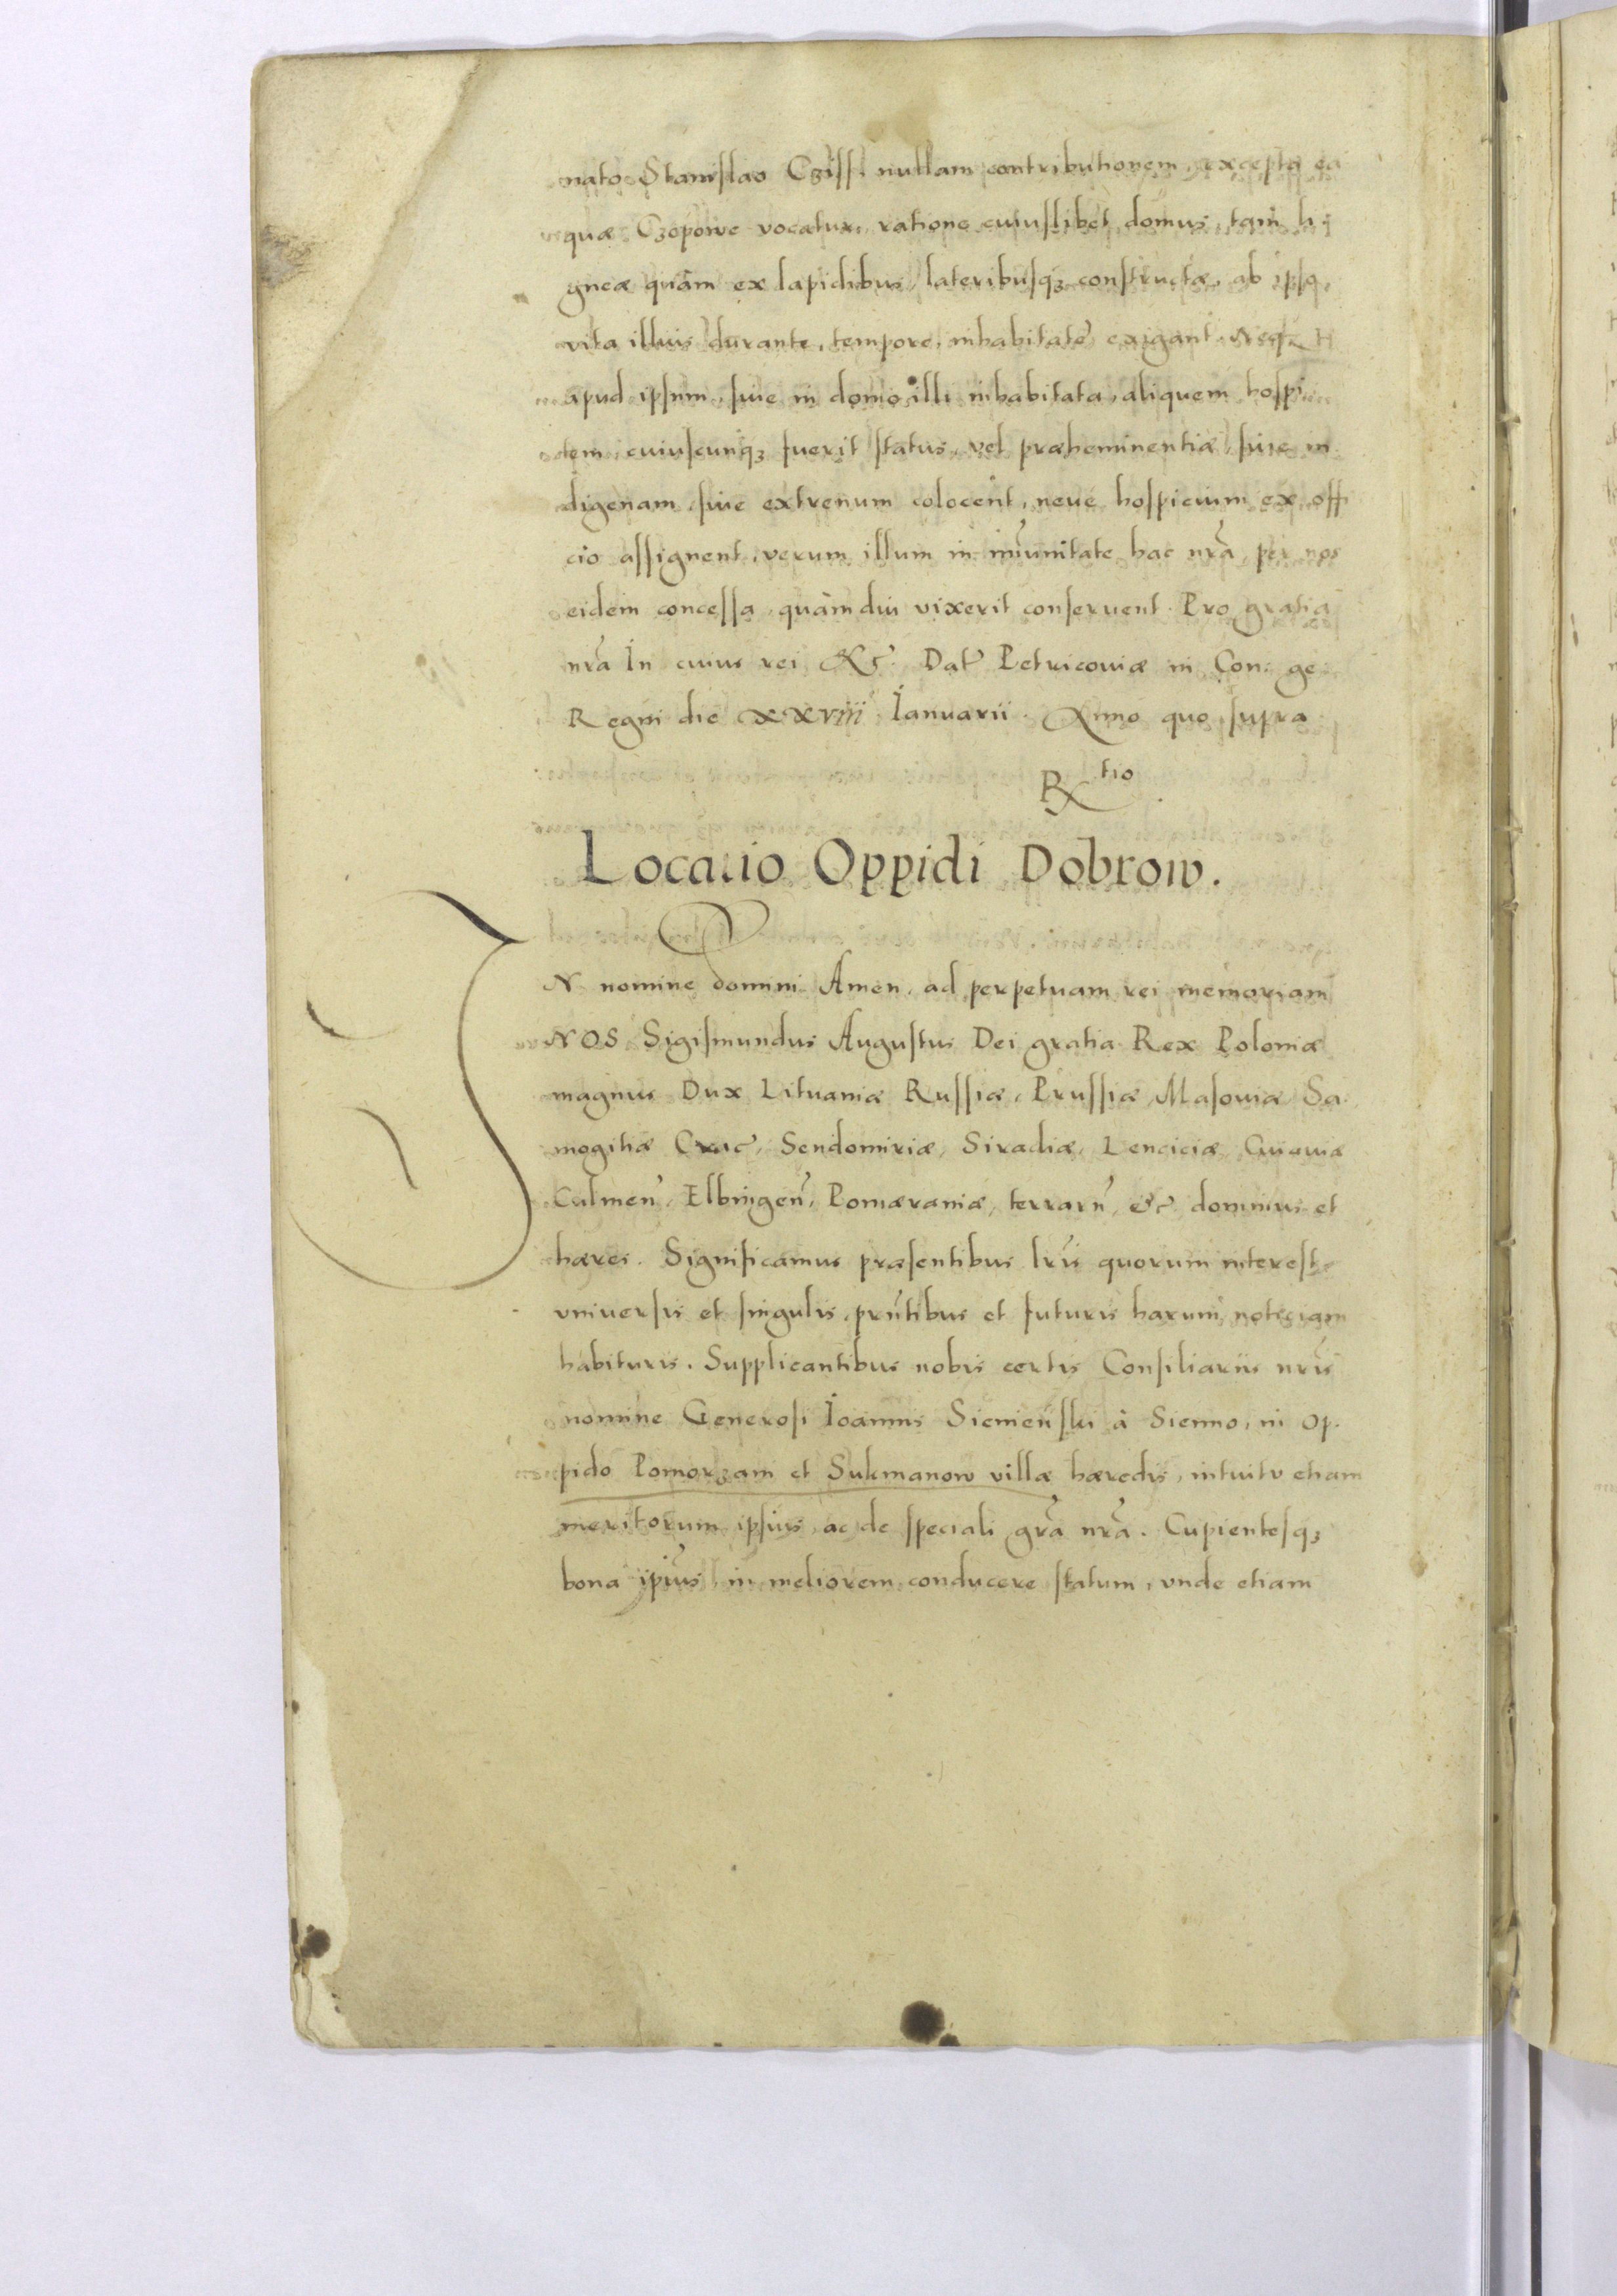 nato Stanislao Cziss. nullam contributionem, excepta ea
quæ Czopowe vocatur, ratione cuiuslibet domus, tam li-
gneæ quàm ex lapidibus, lateribusqꝫ constructæ, ab ipso,
vita illius durante, tempore, inhabitatæ exigant. Neqꝫ
apud ipsum, siue in domo illi inhabitata, aliquem hospi
tem cuiuscunqꝫ fuerit status, vel præheminentiæ, siue in
digenam, siue extrenum colocent, neue hospicium ex offi
cio assignent, verum illum in im̃unitate hac nr̃a, per nos
eidem concessa, quàm diu vixerit conseruent. Pro gratia
nr̃a In cuius rei &c. Dat̃ Petricouiæ in Con: ge
Regni die XXVIII Ianuarii. Anno quo supra
R tio
Locatio Oppidi Dobrow.
IN nomine domini Amen, ad perpetuam rei memoriam
NOS Sigismundus Augustus Dei gratia Rex Poloniæ
magnus Dux Lituaniæ Russiæ, Prussiæ, Masouiæ Sa
mogitiæ Crac̃, Sendomiriæ, Siradiæ, Lenciciæ, Cuiauiæ
Culmeñ, Elbingeñ, Pomæraniæ, terrarũ, &c dominus et
hæres. Significamus præsentibus lr̃is quorum interest
vniuersis et singulis, pñtibus et futuris harum noticiam
habituris. Supplicantibus nobis certis Consiliariis nr̃is
nomine Generosi Ioannis Sienieński à Sienno, in Op.
pido Pomorzani et Sukmanow villæ hæredis, intuitu etiam
meritorum ipsius, ac de speciali gr̃a nr̃a. Cupientesqꝫ
bona ip̃ius, in meliorem conducere statum, vnde etiam